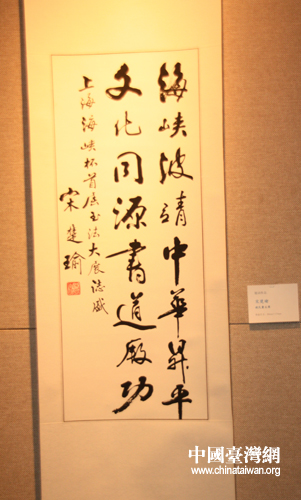 海峡波靖中華昇平
文化同源書道厥功
上海海峡杯首届书法大展志盛
宋楚瑜
中國臺灣網
www.chinataiwan.org